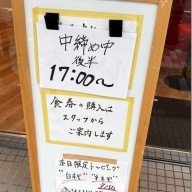 中締め中
後半
17:00〜
食券の購入は
スタッフから
ご案内します
本日限定トッピング